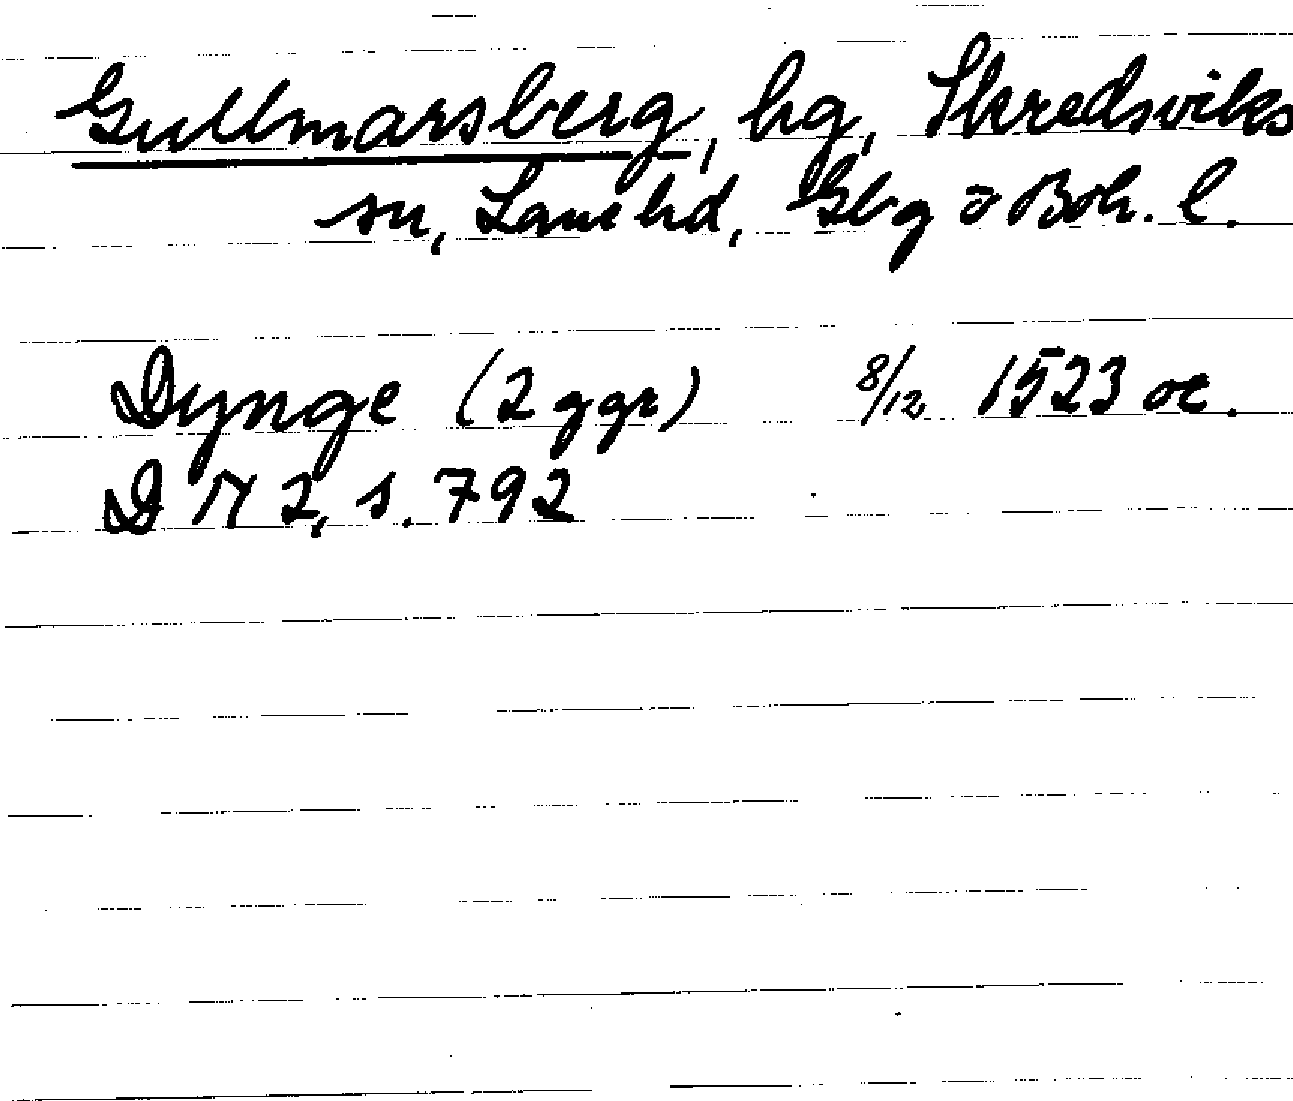 Gullmarsberg, hg, Skredsviks
sn, Lane hd, Gbg o Boh. l.
Dynge (2 ggr) 8/12 1523 or.
D N 2, s. 792